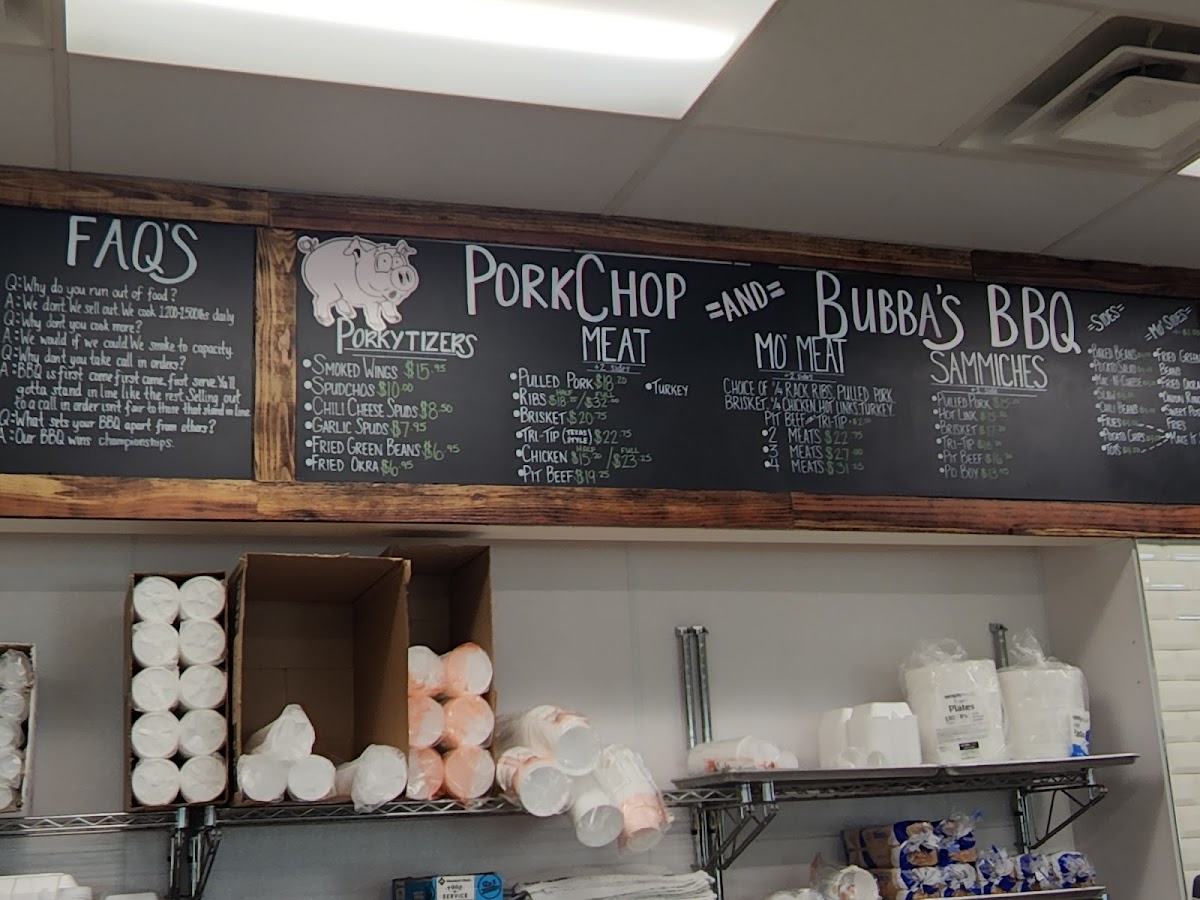 FAQ'S
Q: Why do you run out of food?
A: We dont. We sell out. We cook 1200-1500lbs daily
Q: Why dont you cook more?
A: We would if we could. We smoke to capacity.
Q: Why dont you take call in orders?
A: BBQ is first come first come, fast serve. Ya'll
gotta stand in line like the rest. Selling out
to a call in order isnt fair to those that stand in line
Q: What sets your BBQ apart from others?
A: Our BBQ wins championships.
PORKCHOP =AND= BUBBA'S BBQ
PORKYTIZERS
•SMOKED WINGS $15.95
•SPUDCHOS $10.00
•CHILI CHEESE SPUDS $8.50
•GARLIC SPUDS $7.95
•FRIED GREEN BEANS $6.95
•FRIED OKRA $6.95
MEAT
+2 sides
•PULLED PORK $18.20
•RIBS
•BRISKET $20.75
•TRI-TIP (TEXAS STYLE) $22.75
•CHICKEN HALF $15.20 / FULL $23.25
•PIT BEEF $19.25
•TURKEY
MO' MEAT
+2 sides
CHOICE OF ¼ RACK RIBS, PULLED PORK
BRISKET, ¼ CHICKEN, HOT LINKS, TURKEY
PIT BEEF TRI-TIP
•2 MEATS $22.75
•3 MEATS $27.00
•4 MEATS $31.25
SAMMICHES
•PULLED PORK
•HOT LINK
•BRISKET
•TRI-TIP
•PIT BEEF
•PO BOY
=SIDES=
•BAKED BEANS
•POTATO SALAD
•MAC-N-CHEESE
•SLAW
•CHILI BEANS
•FRIES
•POTATO CHIPS
•TOTS
=MO' SIDES=
•FRIED GREEN
BEANS
•FRIED
•ONION
FRIES
Plates
SERVICE